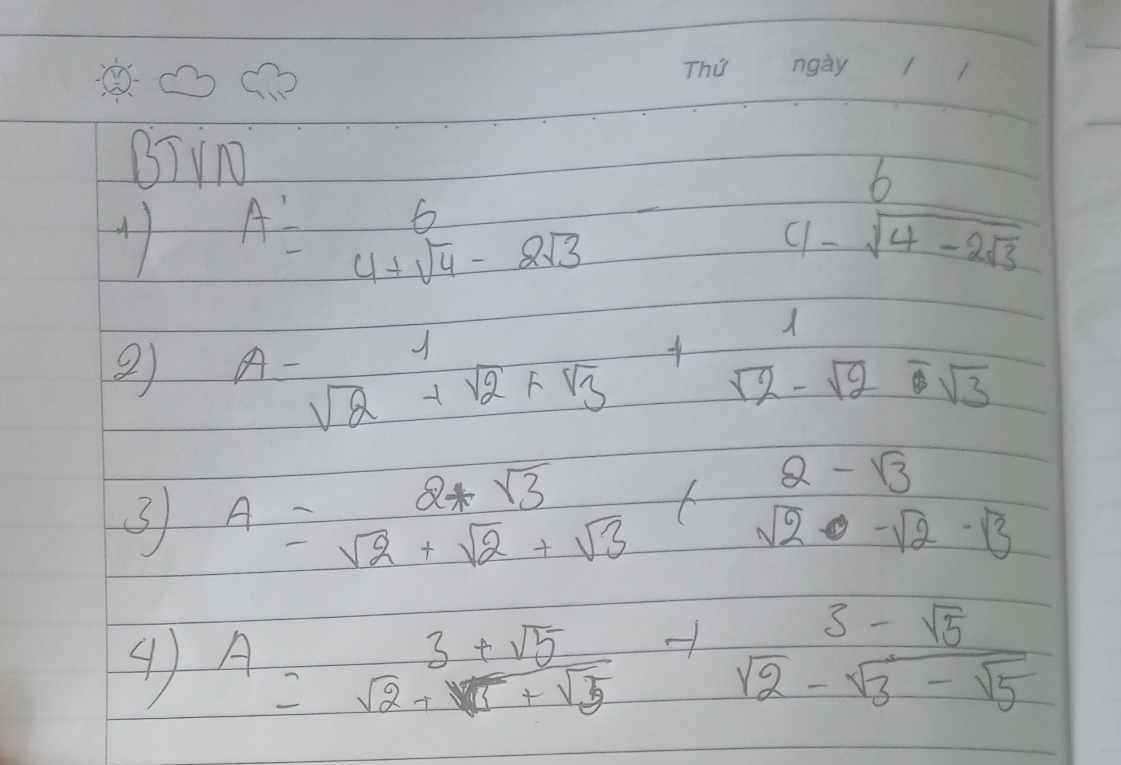 Thứ ngày / /
BTVN
1) A = 6 / (4 + √4 - 2√3) - 6 / (4 - √(4 - 2√3))
2) A = 1 / (√2 + √2 + √3) + 1 / (√2 - √2 - √3)
3) A = (2 + √3) / (√2 + √2 + √3) + (2 - √3) / (√2 - √2 - √3)
4) A = (3 + √5) / (√2 + √(3 + √5)) + (3 - √5) / (√2 - √(3 - √5))